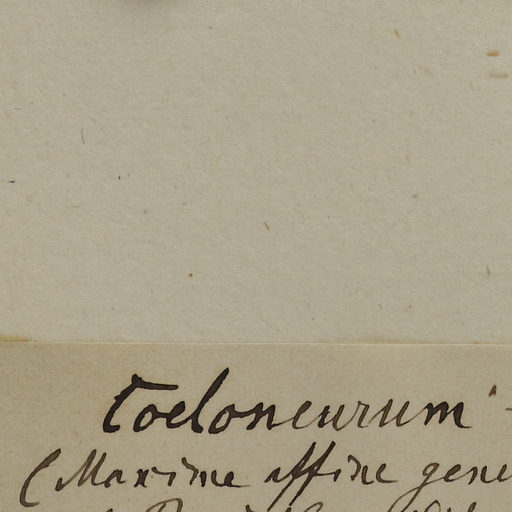 Coeloneurum
(Maxime affine gene